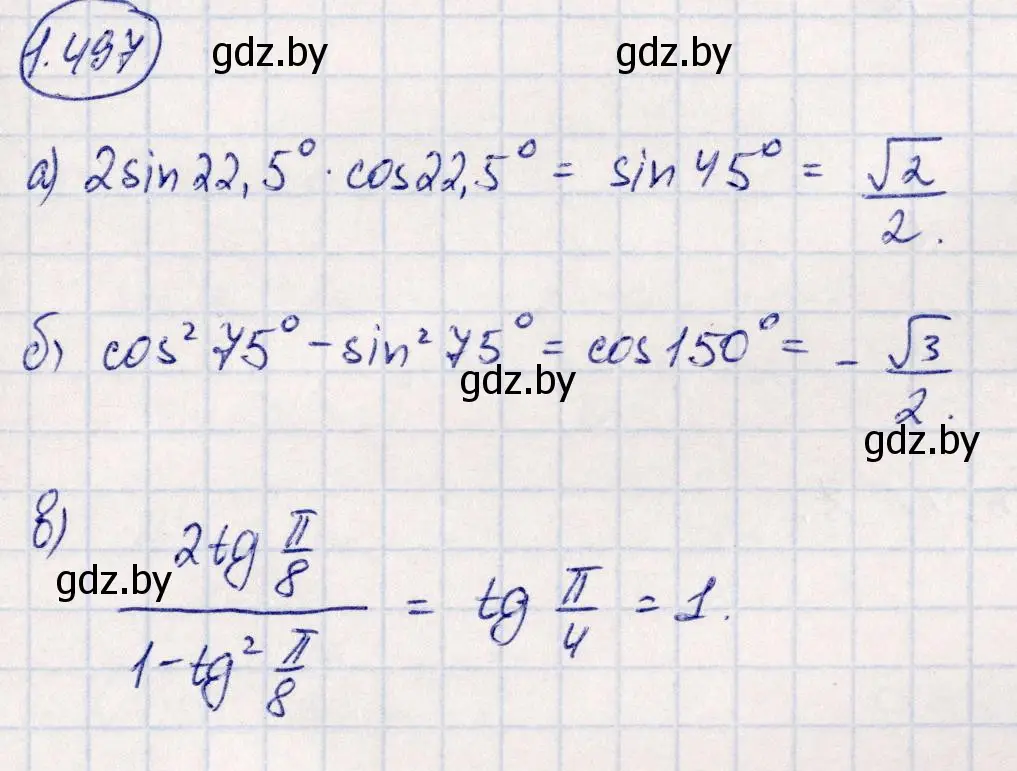 1.497 gdz.by gdz.by
а) 2sin22,5° · cos22,5° = sin45° = √2/2.
б) cos² 75° - sin² 75° = cos150° = - √3/2.
gdz.by gdz.by
в) 2tg π/8 / 1-tg² π/8 = tg π/4 = 1.
gdz.by